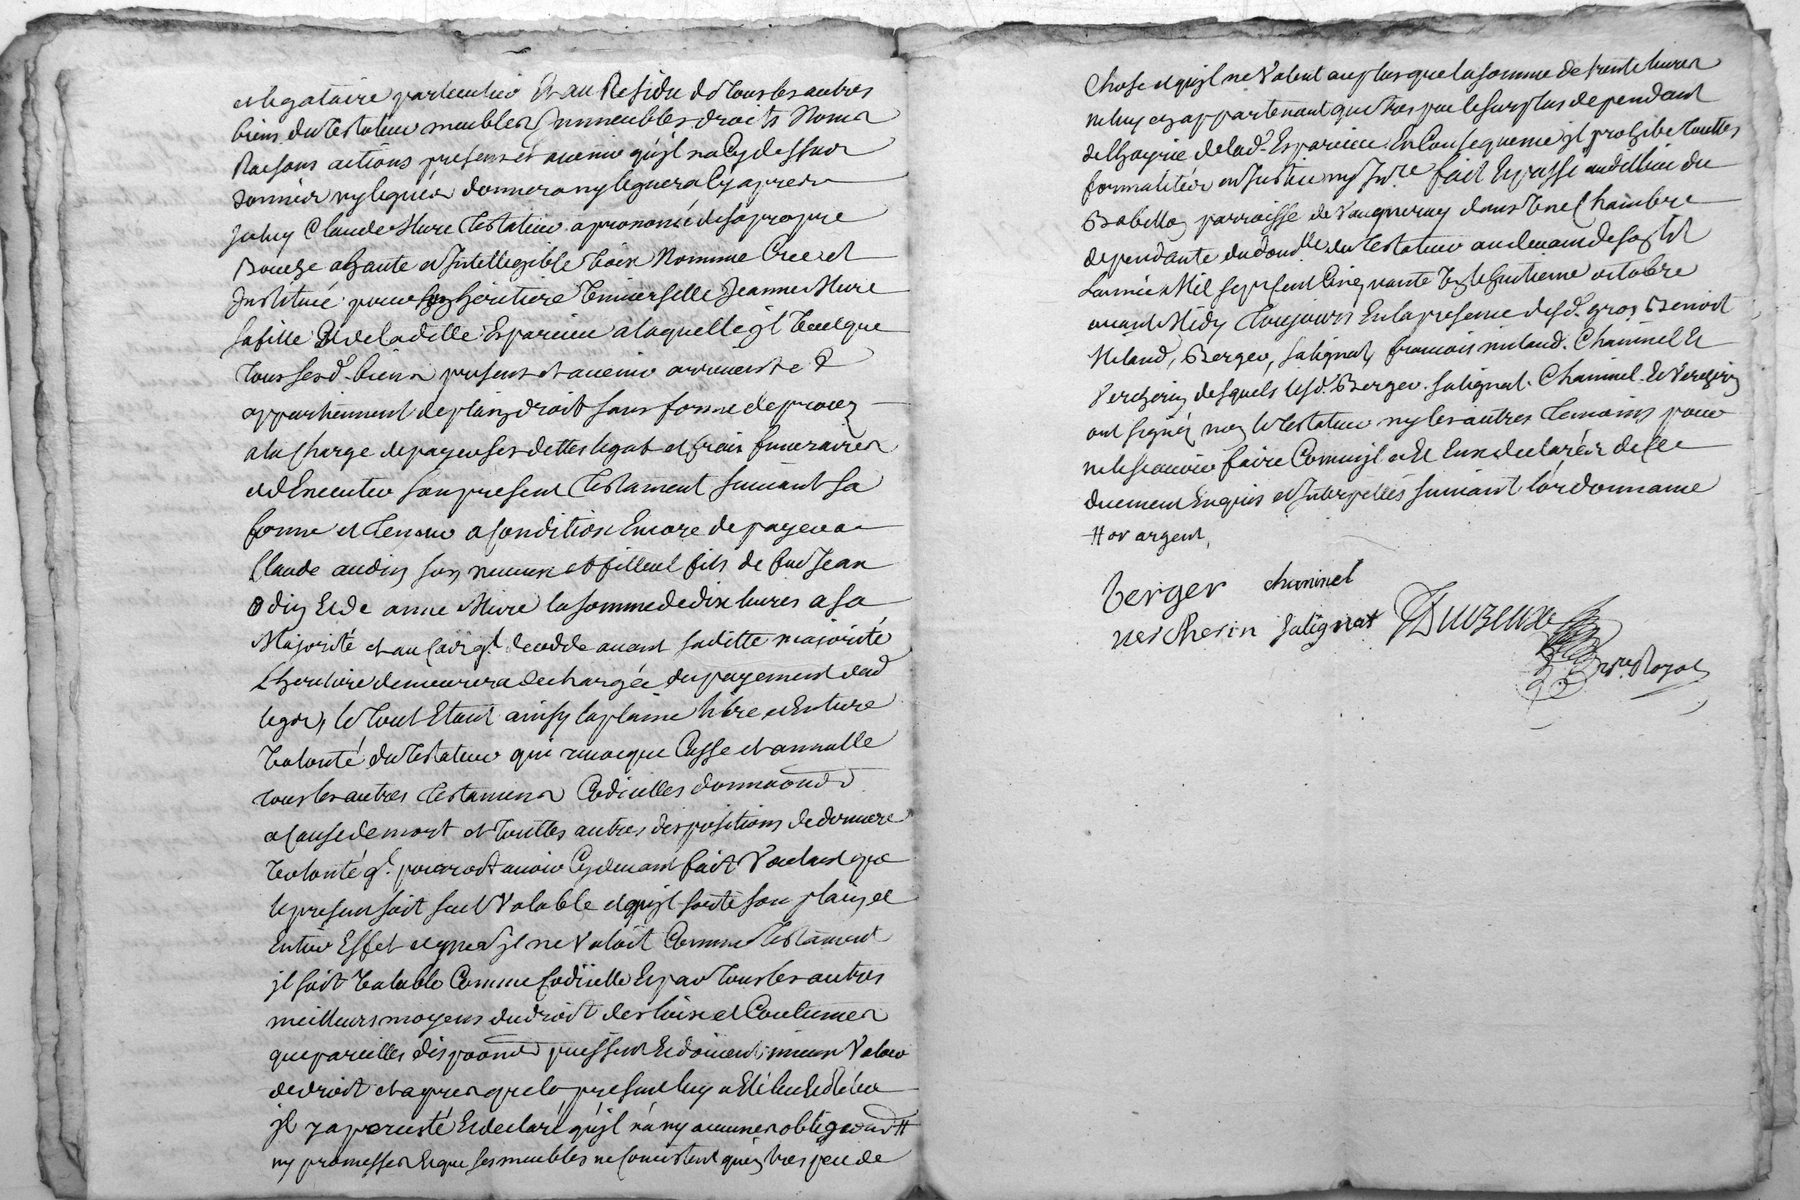 et legataire particulier Et au Residu de tous les autres
biens du testateur meubles Immeubles droits Noms
Raisons actions presens et avenir qu'jl na Cy dessus
donnés ny legués donnera ny leguera Cy apres
jceluy Claude Mure testateur a prononcé de sa propre
Bouche a haute et Intelligible Voix Nomme Cree et
Institué pour son heritiere Vniverselle Jeanne Mure
sa fille Et de laditte Esparcieu a laquelle jl Veut que
tous sesd. biens presens et avenir arrivent &
appartiennent de plain droit sans forme de procez
a la Charge de payer ses dettes legats et frais funeraires
et d'Executer son present testament suivant sa
forme et teneur a Condition Encore de payer a
Claude audin son neveux et filleul fils de feu Jean
Odin Et de anne Mure la somme de dix livres a sa
Majorité et au Cas q.l decedde avant saditte majorité
L'heritiere demeurera dechargée du payement dud
legat, le tout Etant ainsy la plaine libre et Entiere
Volonté du testateur qui revoque Casse et annulle
tous les autres testamens Codicilles donnaons
a Cause de mort et touttes autres dispositions de derniere
Volonté q.l pourroit avoir Cy devant fait Voulant que
le present soit seul Valable et qu'jl sorte son plain et
Entier Effet et que s'jl ne Valoit Comme testament
jl soit Valable Comme Codicille Et par tous les autres
meilleurs moyens du droit des loix et Coutumes
que pareilles disp̃oons puissent Et doivent mieux Valoir
de droit et apres que le present luy a Eté leu Et Releu
jl y a persisté Et declaré qu'jl n'a ny aucunes obligaons #
ny promesses Et que ses meubles ne Consistent qu'en tres peu de
Chose et qu'jl ne Valent au plus que la somme de trente livres
ne luy en appartenant que tres peu le surplus dependant
de lad.e Esparcieu En Consequence jl prohibe touttes
formalités en Justice ny Inre. fait Et passé au lieu du
paroisse de Vaugneray dans Vne Chambre
dependante du dom.lle du testateur au devant de
L'année Mil sept Cent Cinquante Vn le huitieme octobre
avant Midy toujours En la presence desd. gros Benoit
Milaud, Berger, Salignat, francois milaud. Chaninel Et
Vercherin desquels lesd. Berger. Salignat. Chaninel. Et Vercherin
ont signés non le testateur ny les autres temoins pour
ne le scavoir faire Comme jl et Eux declarés de Ce
duement Enquis et Interpellés suivant l'ordonnance
# or argent,
berger chaninel
vercherin Salignat
nre. Royal